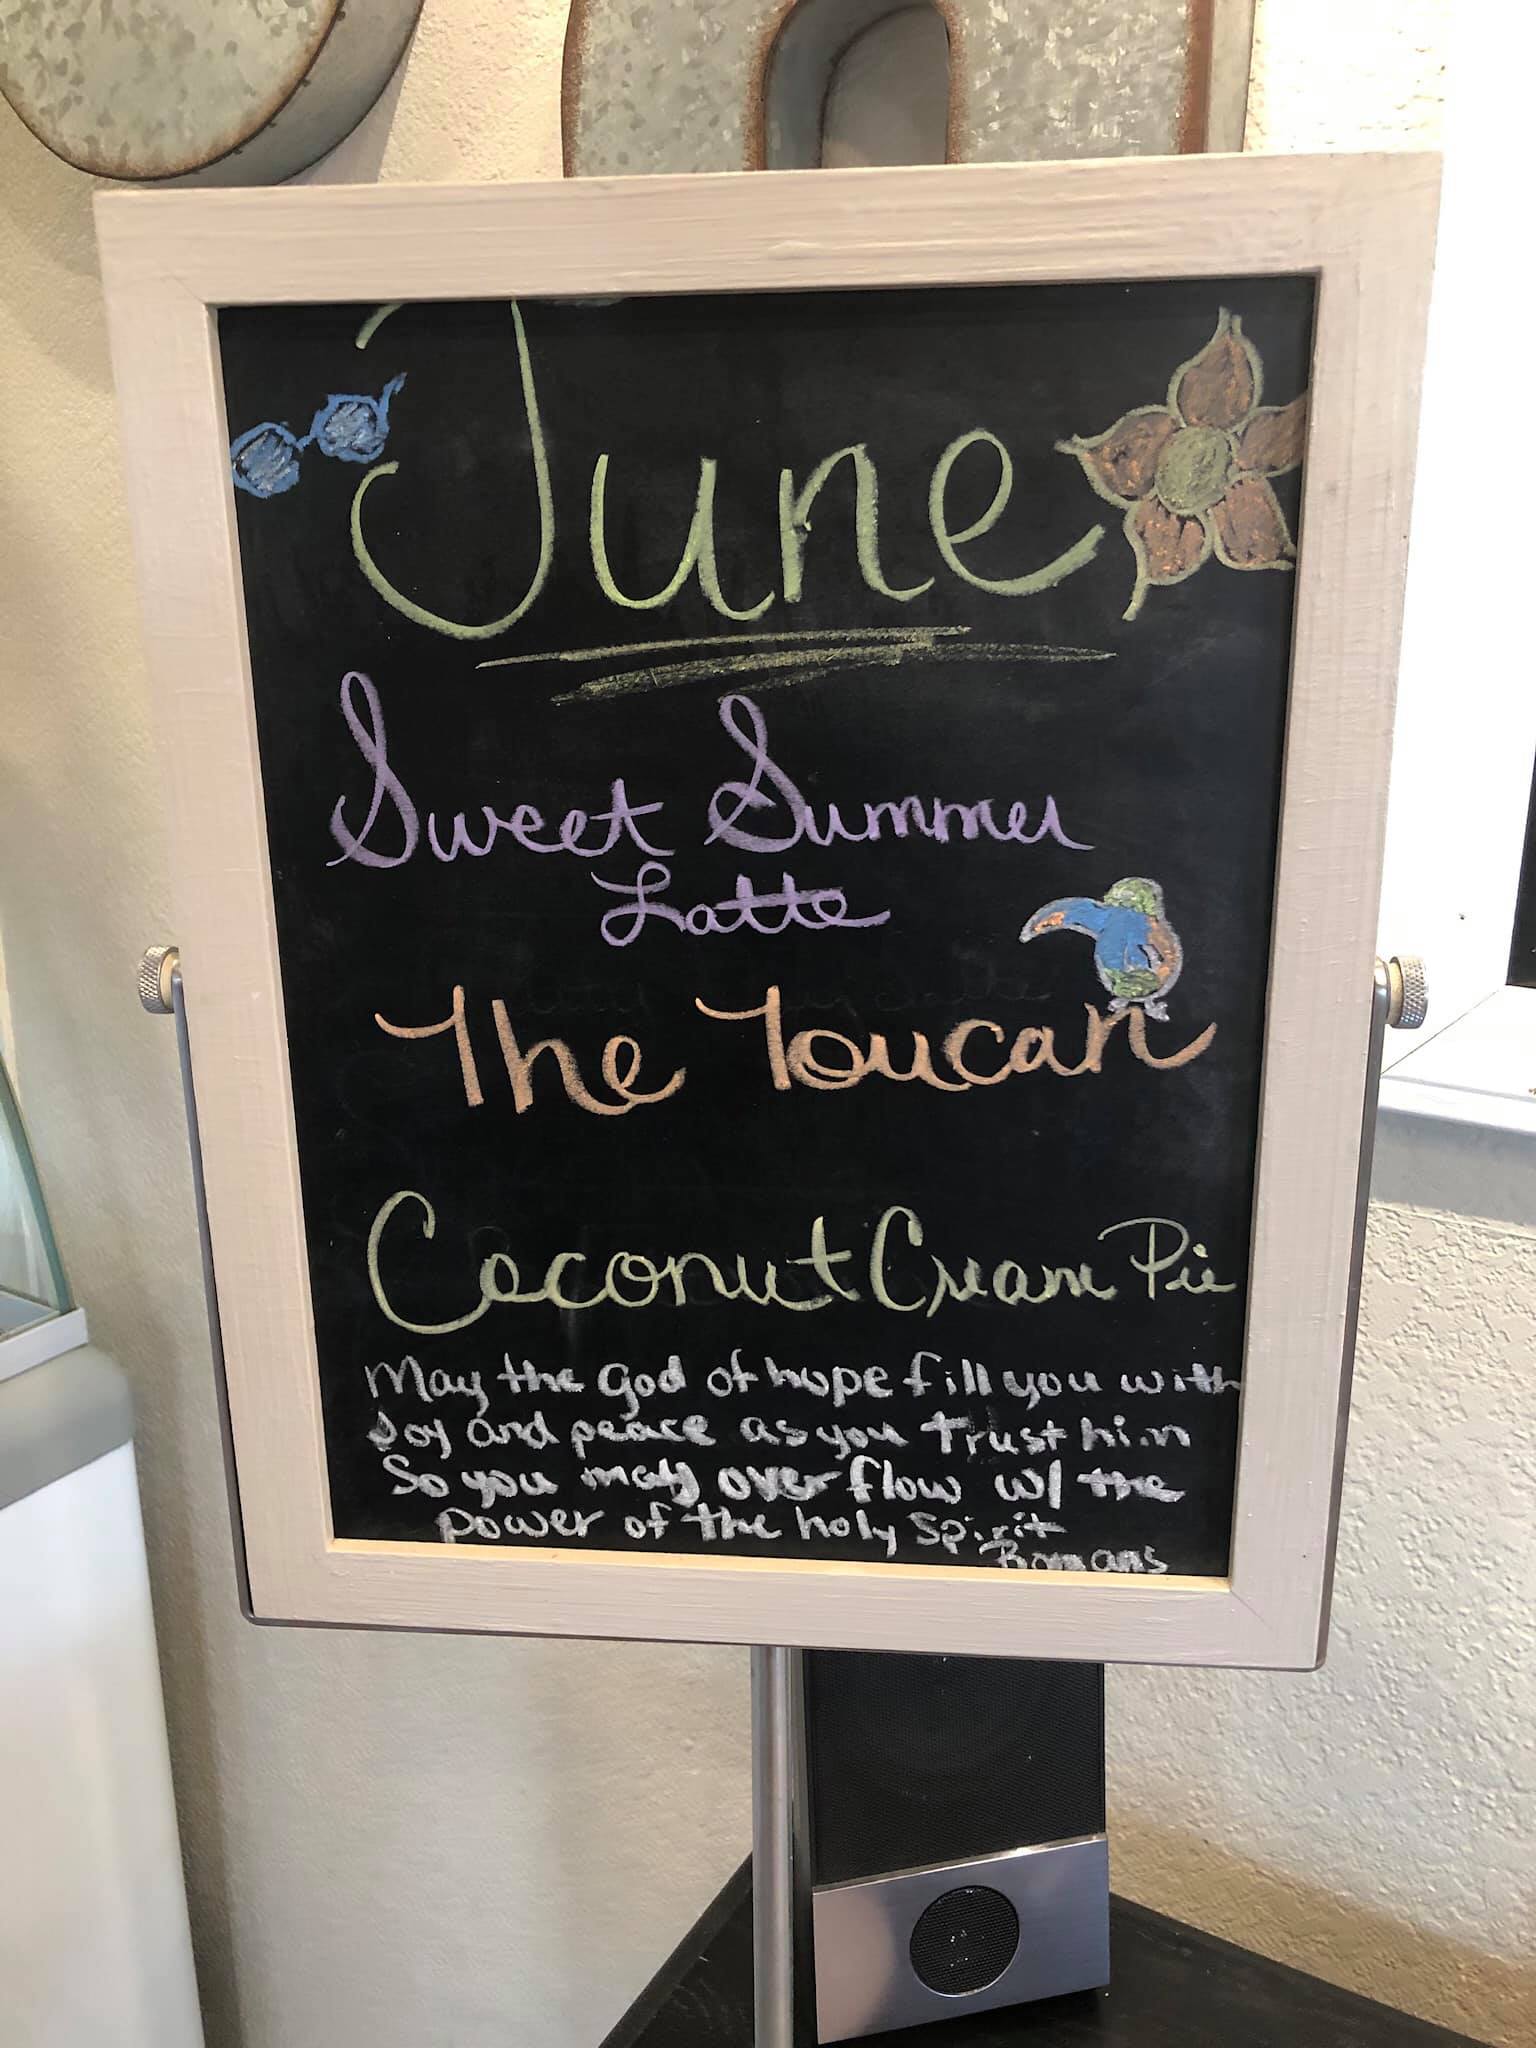 June
Sweet Summer
Latte
The Toucan
Coconut Cream Pie
May the God of hope fill you with
Joy and peace as you trust him
So you may over flow w/ the
power of the holy spirit
Romans